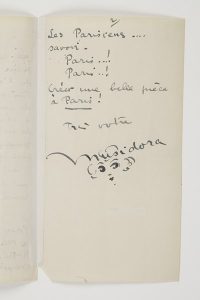 2
Les Parisiens ....
savoir.
Paris...!
Paris..!
Créer une belle pièce
à Paris !
Très votre
Musidora